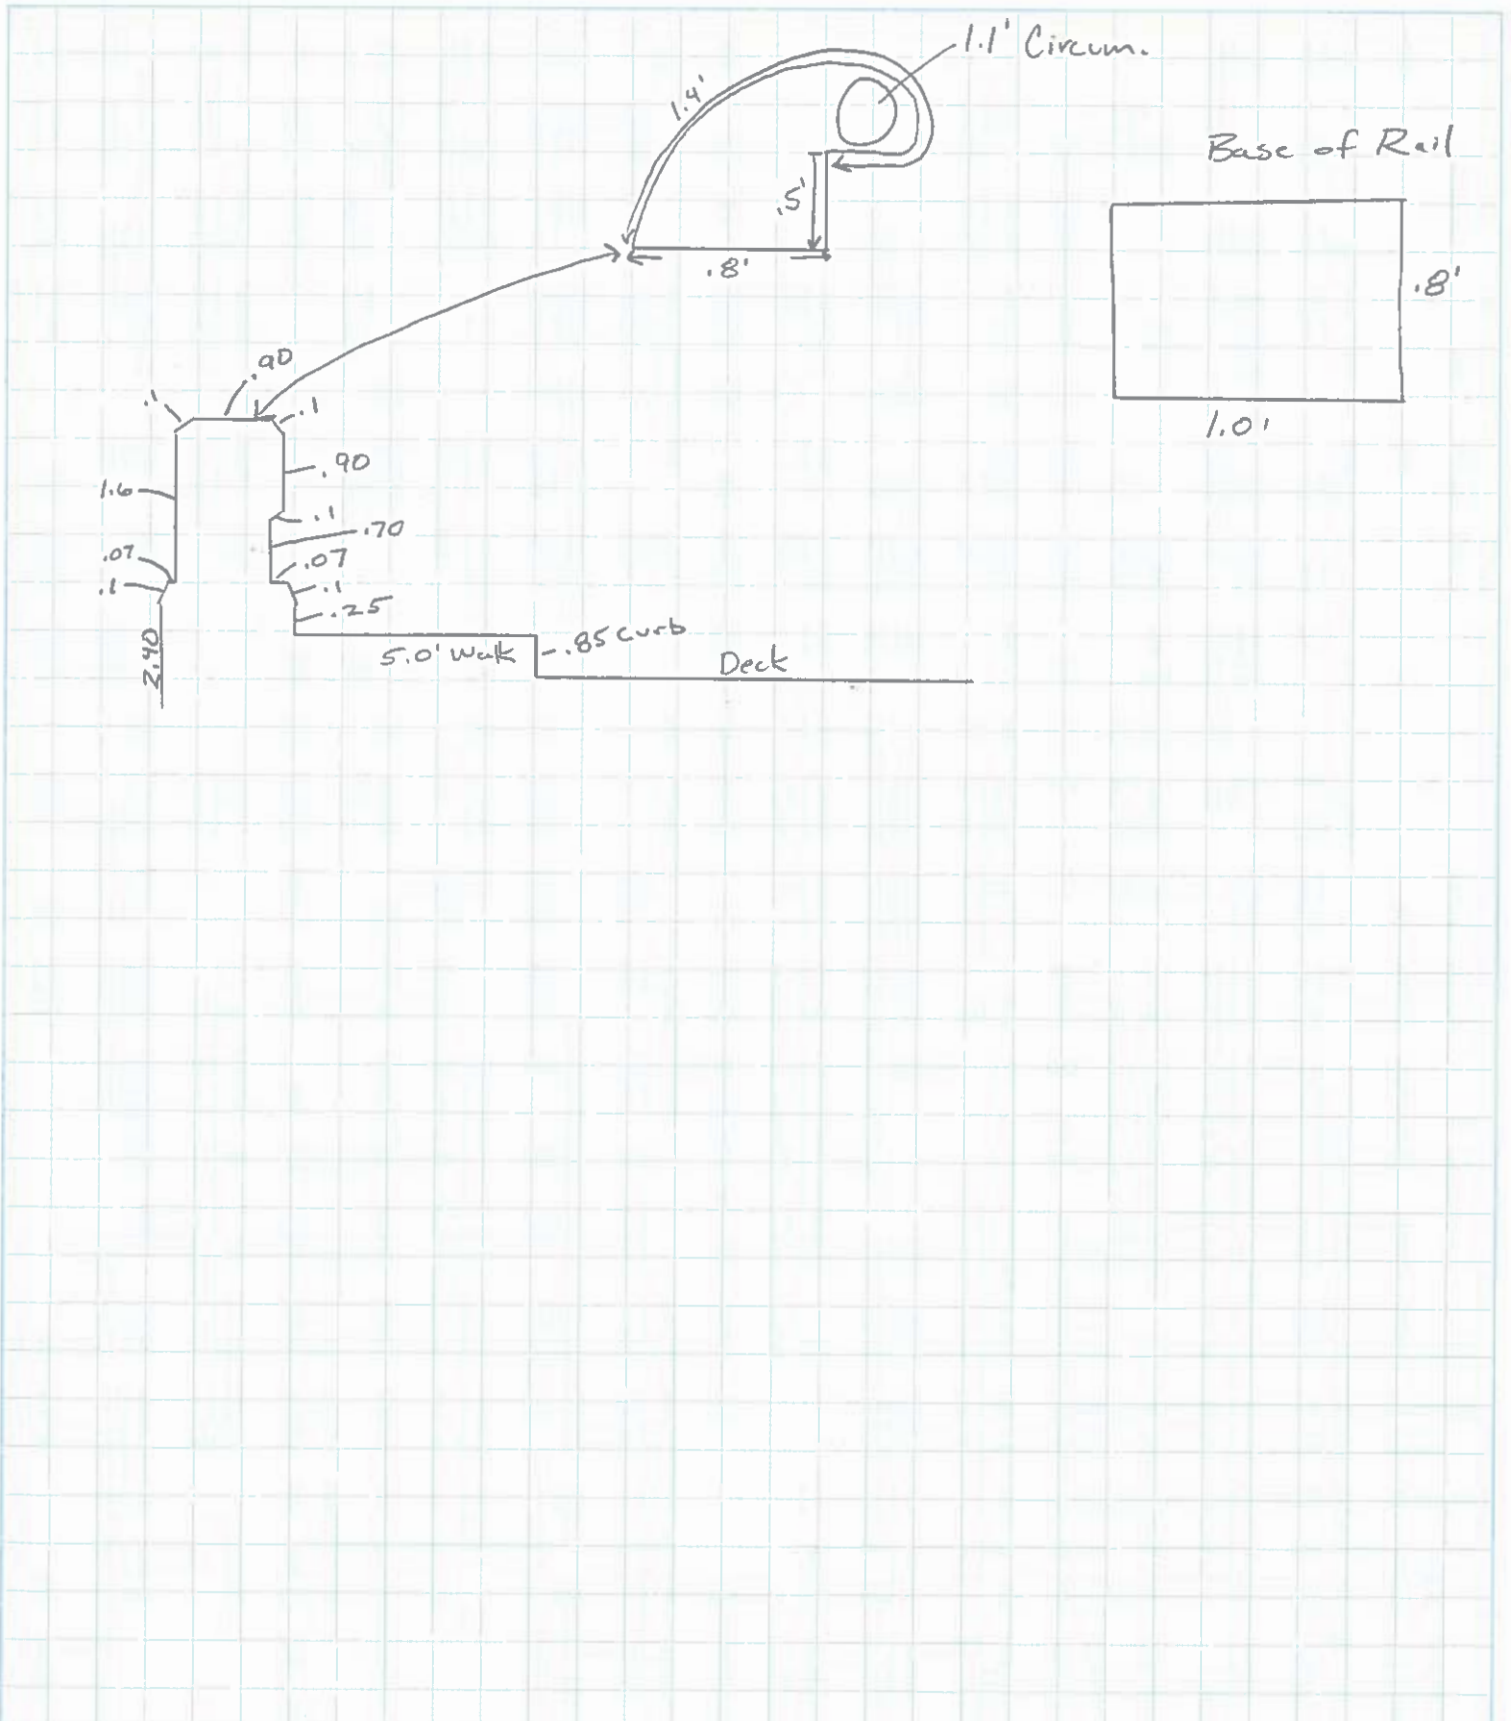 1.1' Circum.
1.4'
Base of Rail
.5'
.8'
.8'
1.0'
.90
.1
.1
.90
1.6
.1
.70
.07
.07
.1
.1
.25
2.40
5.0' Walk
.85 Curb
Deck